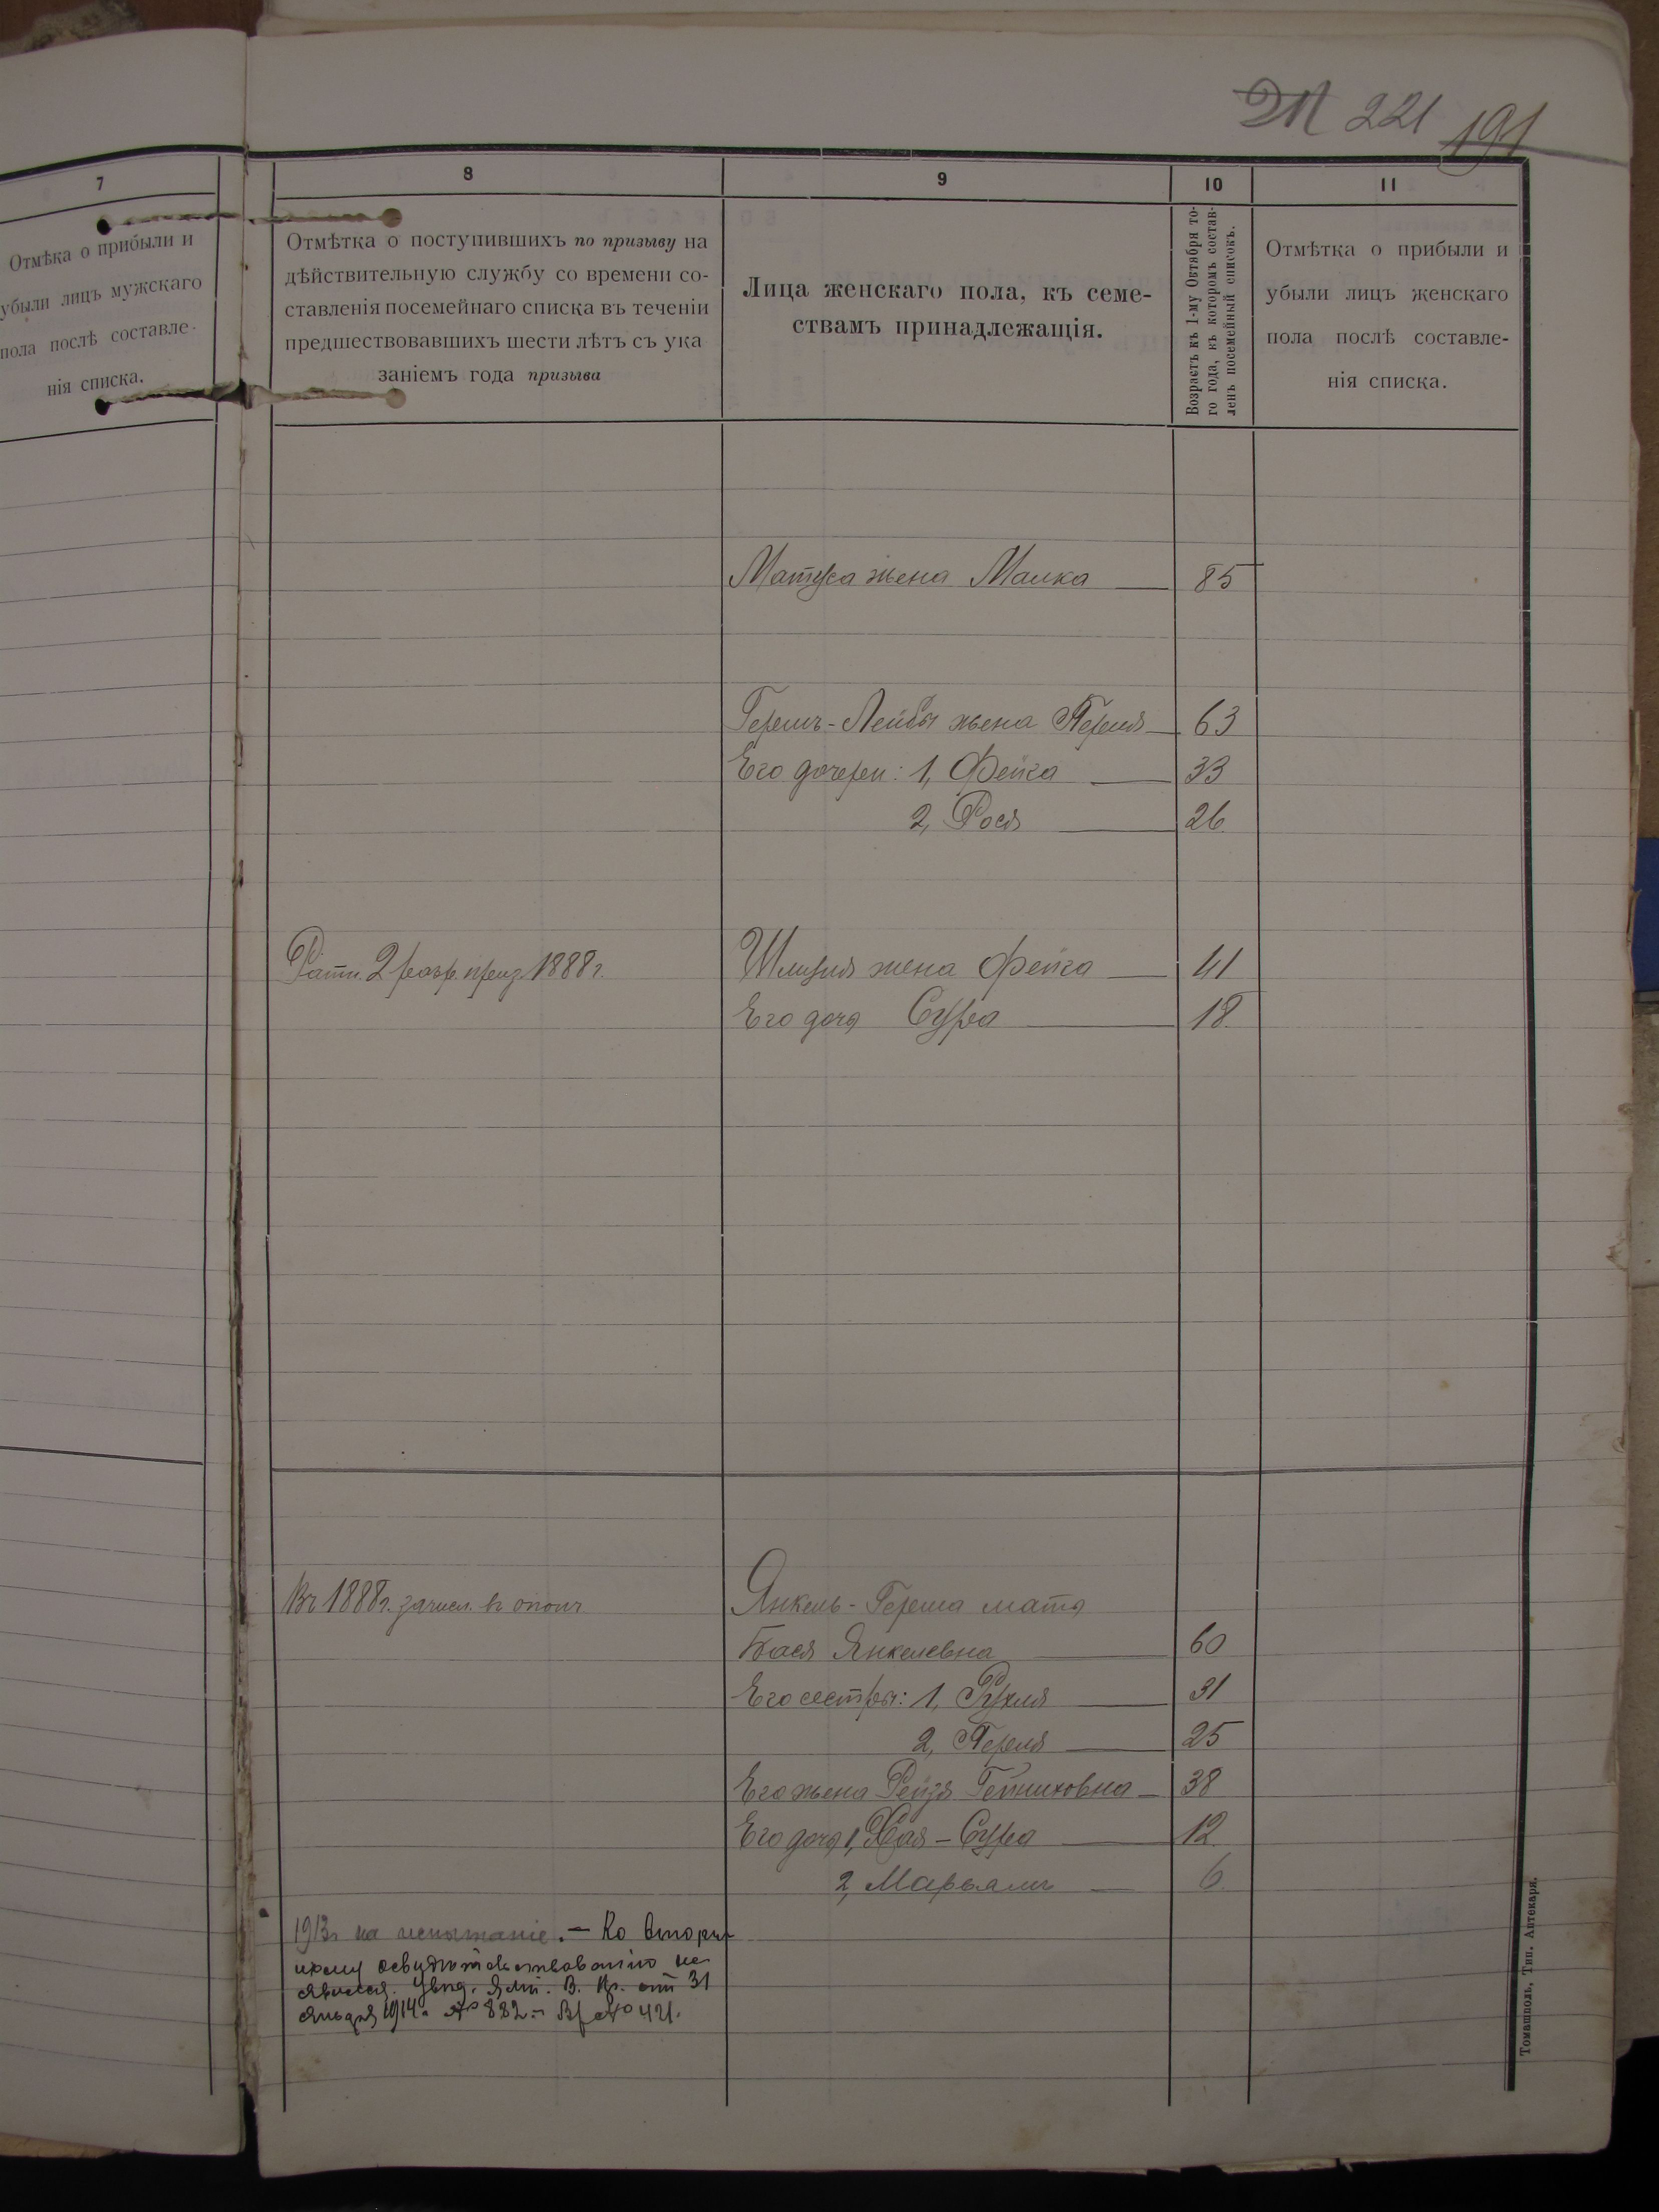 221
191
7
Отмѣка о прибыли и
убыли лицъ мужскаго
пола послѣ составле-
нія списка.
8
Отмѣтка о поступившихъ по призыву на
дѣйствительную службу со времени со-
ставленія посемейнаго списка въ теченіи
предшествовавшихъ шести лѣтъ съ ука
заніемъ года призыва
9
Лица женскаго пола, къ семе-
ствамъ принадлежащія.
10
Возрастъ къ 1-му Октября то-
го года, къ которомъ состав-
ленъ посемейный списокъ.
11
Отмѣтка о прибыли и
убыли лицъ женскаго
пола послѣ составле-
нія списка.
Матуса жена Малка 85
Гершъ-Лейбы жена Перля 63
Его дочери: 1, Фейга 33
2, Рося 26
Ратн. 2 разр. приз. 1888 г.
жена Фейга 41
Его дочь Сура 18
Въ 1888 г. зачисл. в ополч
Янкель-Герша мать
Бася Янкелевна 60
Его сестры: 1, Рухля 31
2, Перля 25
Его жена Рейзя 38
Его дочь 1, Хая-Сура 12
2, Марьямъ 6
1913 г на испытаніе. — Ко втори-
чному освидѣтельствованію не
явился. Увѣд. В. Пр. отъ 31
Января 1914 г. № 882 № 421.
Томашполь, Тип. Аптекаря.